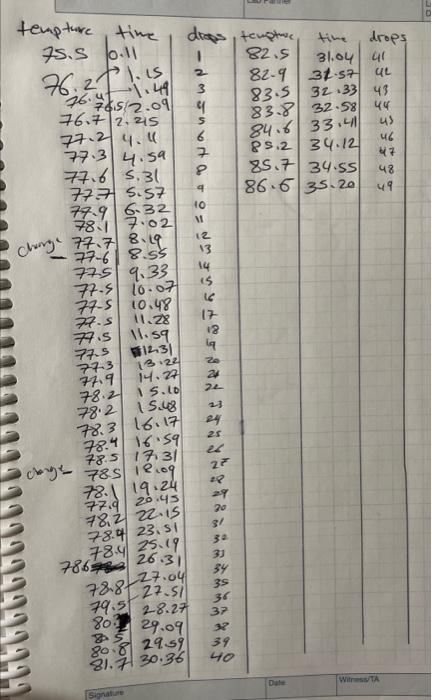 tempture time drops tempture time drops
75.5 0.11 1 82.5 31.04 41
76.2 1.15 2 82.9 31.57 42
76.4 1.49 3 83.5 32.33 43
76.5 2.09 4 83.8 32.58 44
76.7 2.215 5 84.6 33.41 45
77.2 4.11 6 85.2 34.12 46
77.3 4.59 7 85.7 34.55 47
77.6 5.31 8 86.6 35.20 48
77.7 5.57 9 49
77.9 6.32 10
78.1 7.02 11
change 77.7 8.19 12
77.6 8.55 13
77.5 9.33 14
77.5 10.07 15
77.5 10.48 16
77.5 11.28 17
77.5 11.59 18
77.5 12.31 19
77.3 13.22 20
77.9 14.27 21
78.2 15.10 22
78.2 15.48 23
78.3 16.17 24
78.4 16.59 25
78.5 17.31 26
change 78.5 18.09 27
78.1 19.24 28
77.9 20.45 29
78.2 22.15 30
78.4 23.51 31
78.4 25.19 32
78.6 26.31 33
78.8 27.04 34
79.5 27.51 35
80. 28.27 36
29.09 37
80.8 29.59 38
81.7 30.36 39
40
Signature Date Witness/TA